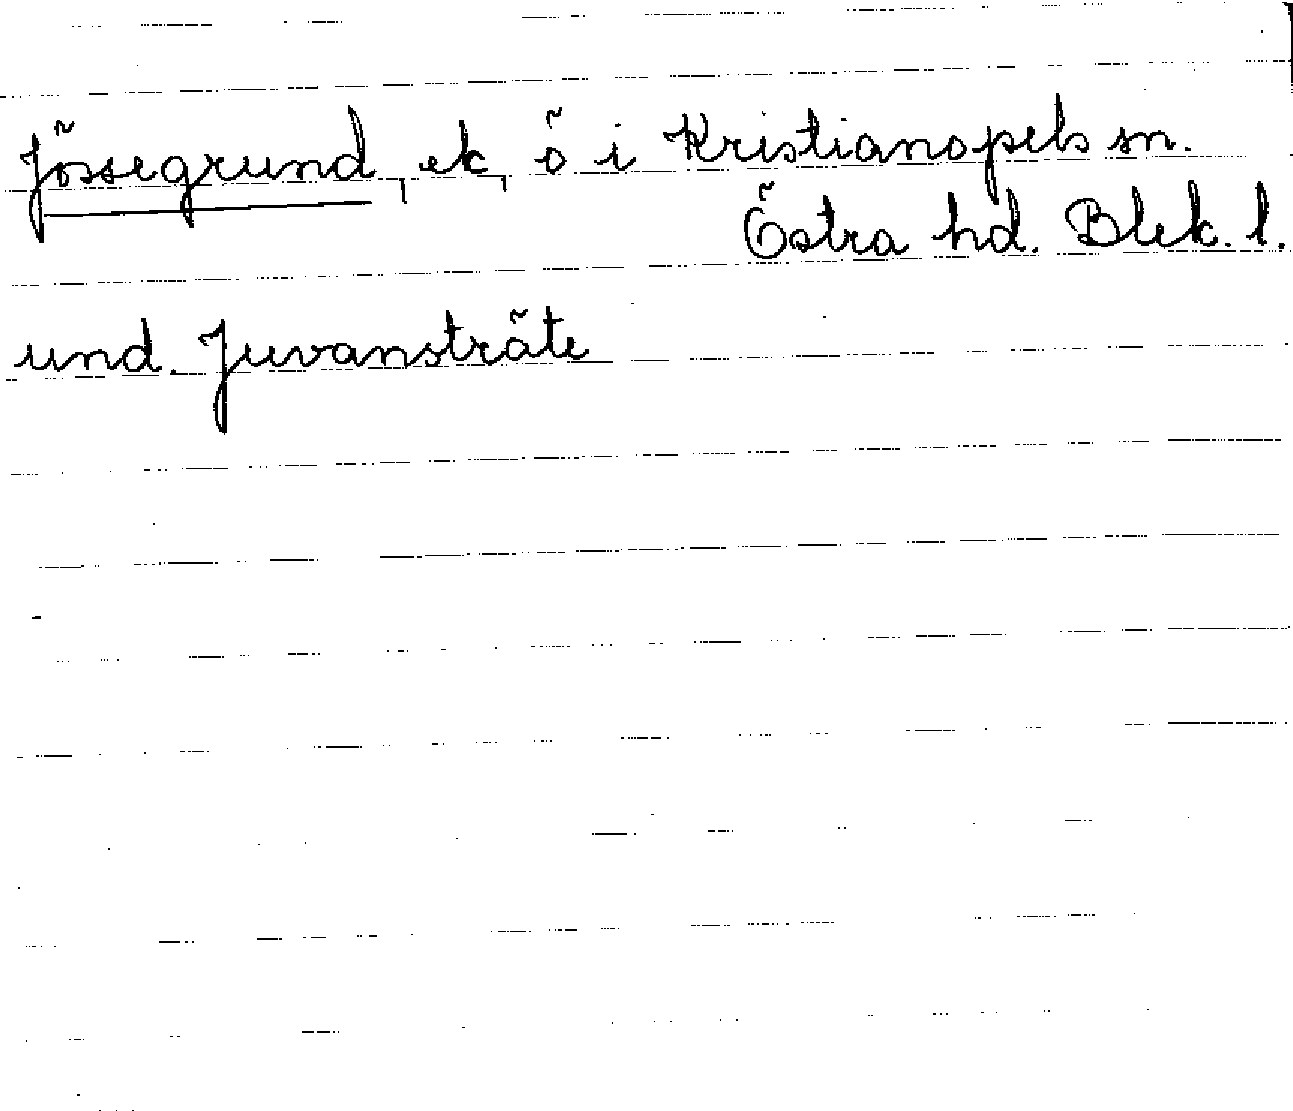 Jössegrund, ek, ö i Kristianopels sn.
Östra hd. Blek. l.
und. Juvansträte